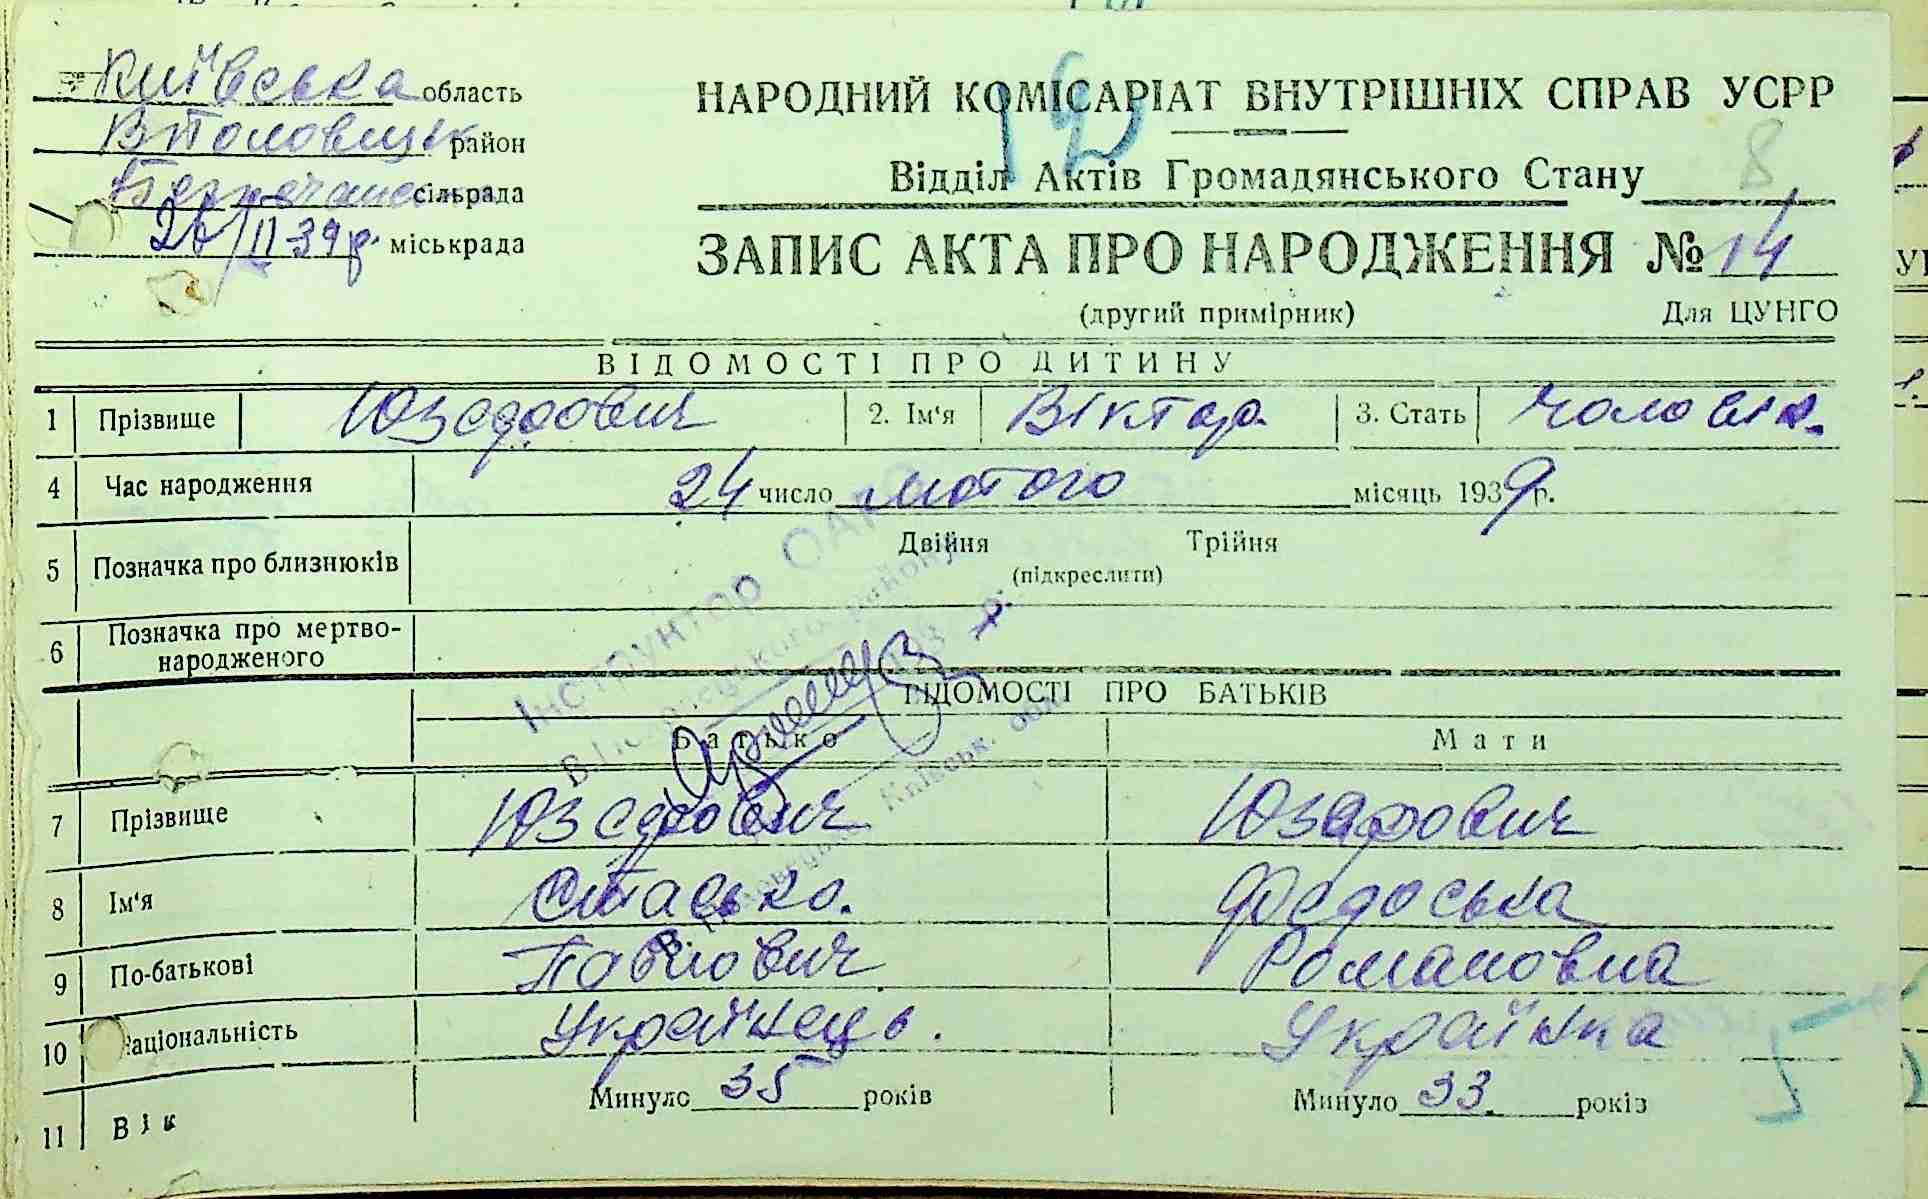 Київська область
район
сільрада
26/II 39 р. міськрада
НАРОДНИЙ КОМІСАРІАТ ВНУТРІШНІХ СПРАВ УСРР
12
8
Відділ Актів Громадянського Стану
ЗАПИС АКТА ПРО НАРОДЖЕННЯ № 14
(другий примірник) Для ЦУНГО
ВІДОМОСТІ ПРО ДИТИНУ
1 Прізвище 2. Ім'я Віктор. 3. Стать чоловіч.
4 Час народження 24 число лютого місяць 1939 р.
5 Позначка про близнюків Двійня Трійня
(підкреслити)
6 Позначка про мертво-
народженого
ВІДОМОСТІ ПРО БАТЬКІВ
Батько Мати
7 Прізвище
8 Ім'я Стасько. Федоська
9 По-батькові Павлович Романовна
10 Національність Українець. Українка
11 Вік Минуло 35 років Минуло 33. років
Інструктор ОАГС